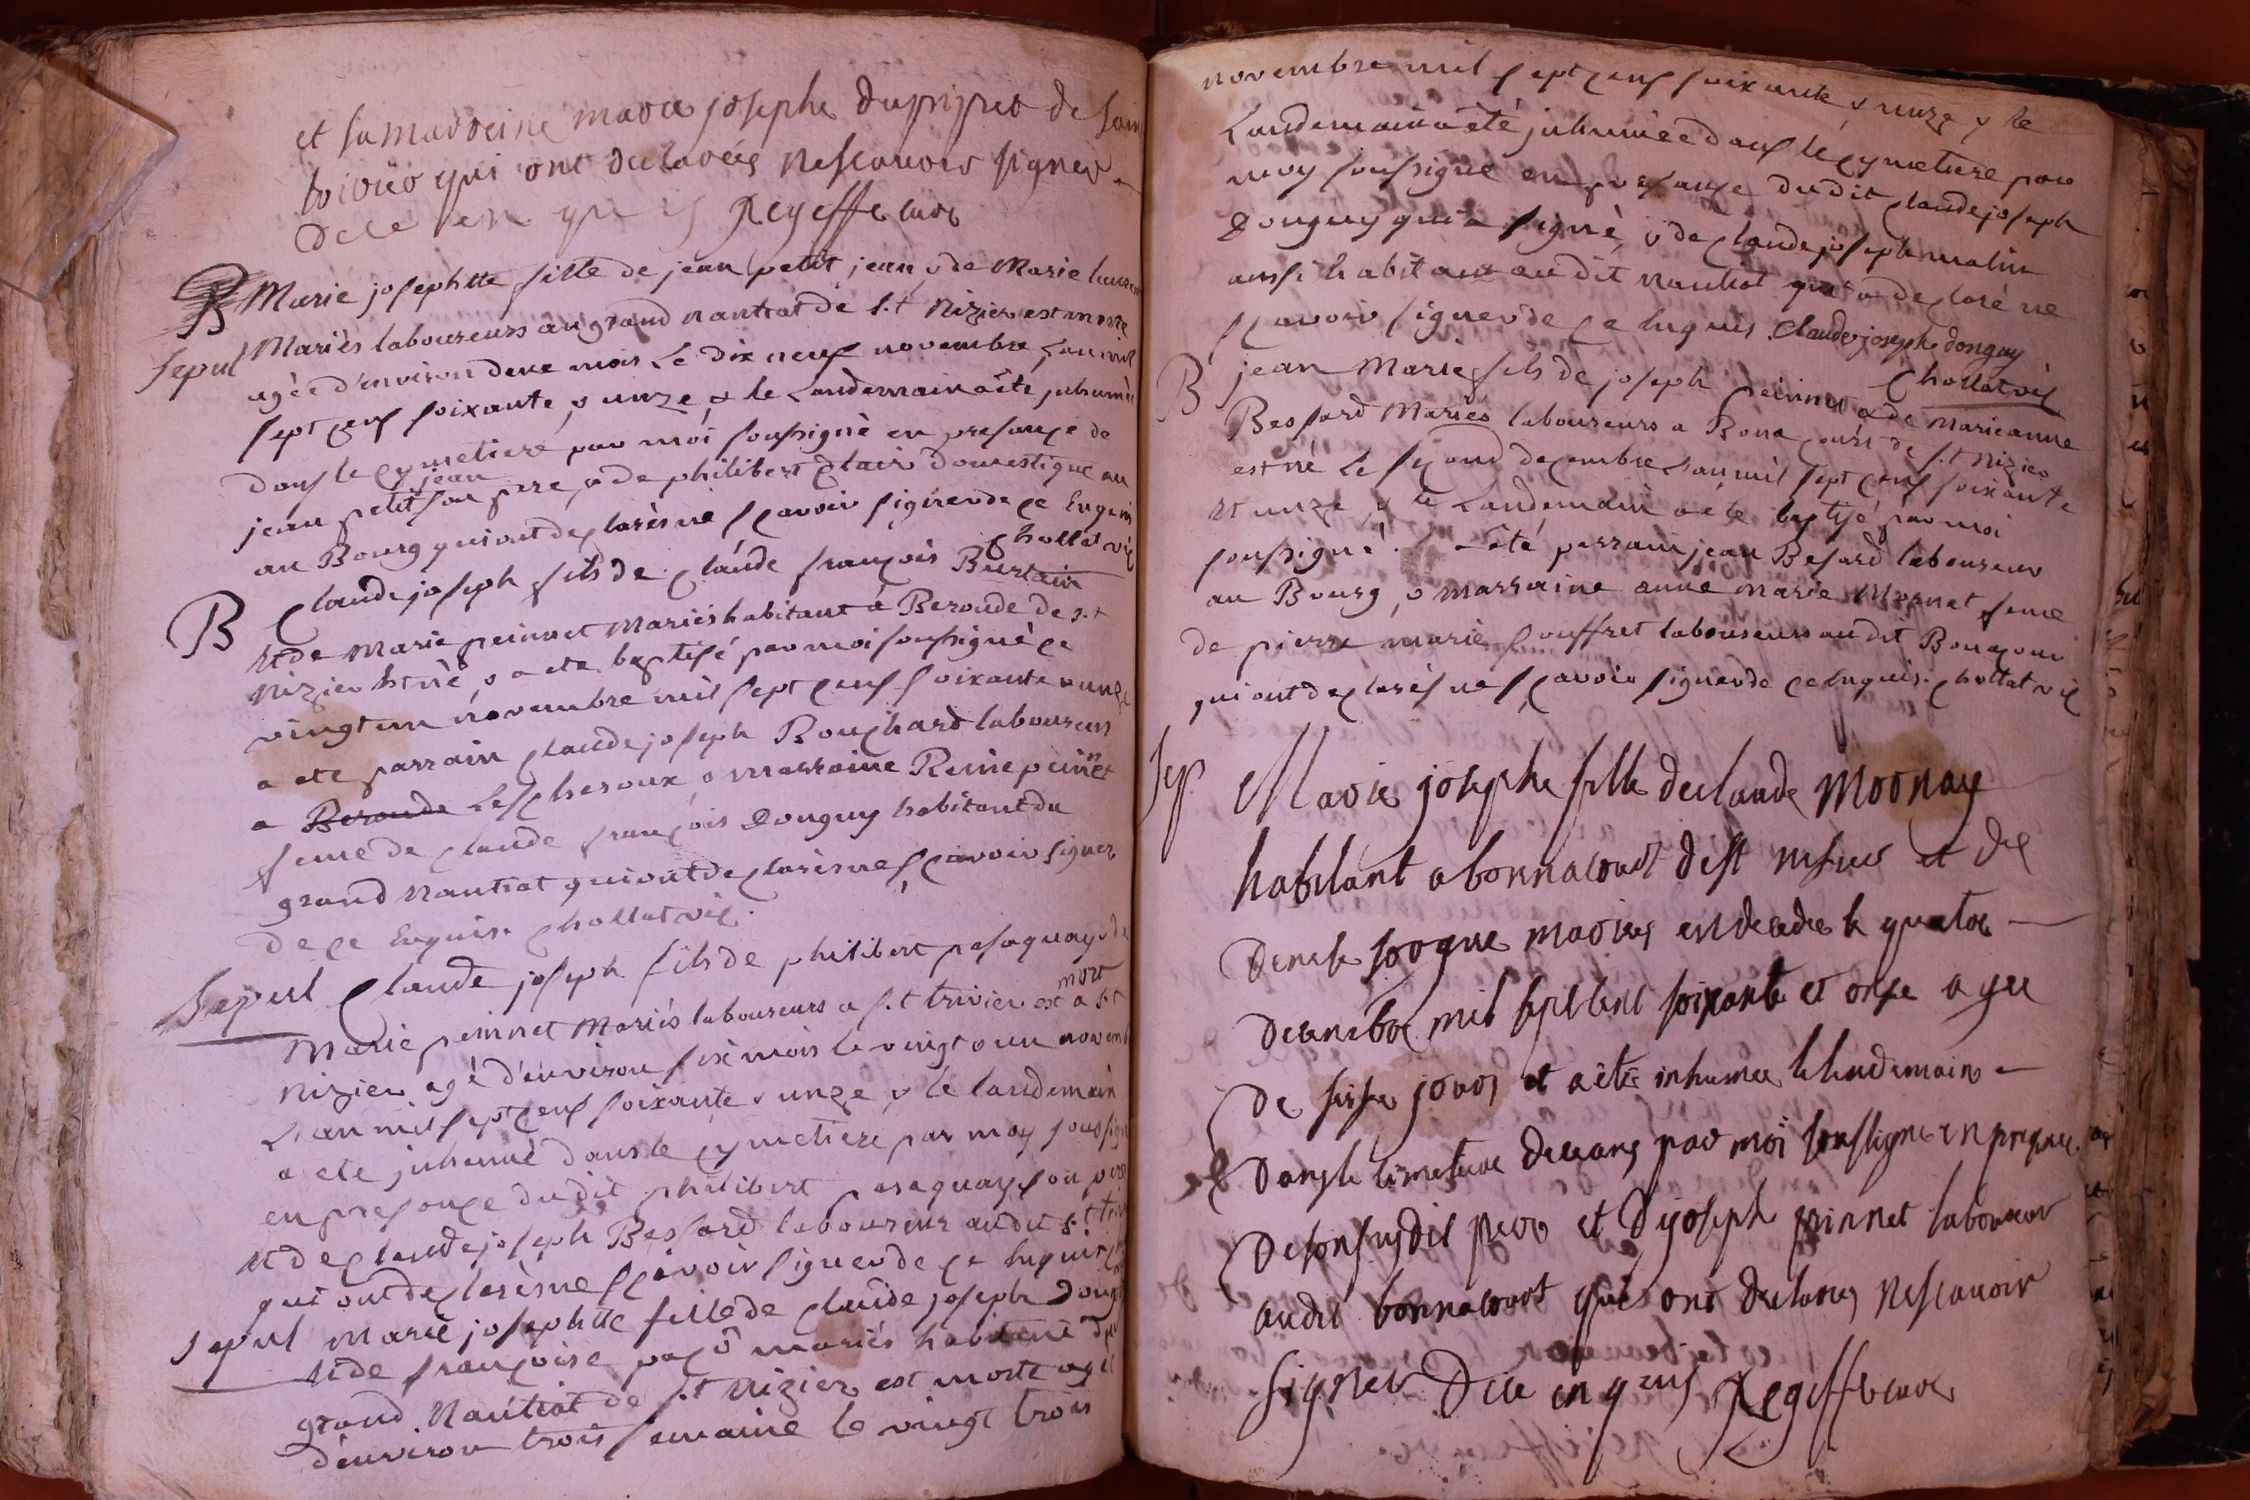 et sa marreine marie josephe dupupet de sain
trivier qui ont declarés nescavoir signer
de ce enquis Regeffe curé
B Marie josephtte fille de jean petit jean & de Marie lauren
sepul Mariés laboureurs au grand nantiat de s.t Nizier est morte
agée d'environ deux mois le dix neuf novembre l'an mil
sept cens soixante & unze & le landemain a été inhumée
dans le cymetiere par moi soussigné en presance de
jean petit jean son pere & de philibert Clair domestique au
au Bourg qui ont declarés ne scavoir signer de ce Enquis
chollat vic
B Claude joseph fils de Claude françois Burtain
et de Marie peinnet Mariés habitant à Beroude de s.t
Nizier est né & a ete baptisé par moi soussigné ce
vingt un novembre mil sept cens soixante & unze
a ete parrain Claude joseph Bouchard laboureur
a Beroude Lescheroux & marraine Reine peinnet
feme de Claude françois Donguy habitant du
grand nantiat qui ont declarés ne scavoir signer
de ce Enquis. chollat vic.
Sepul Claude joseph fils de philibert pasaquay & de
Marie peinnet Mariés laboureurs a s.t trivier est mort a s.t
Nizier agé d'environ six mois le vingt & un novem
L'an mil sept cens soixante & unze & le landemain
a ete inhumé dans le cymetiere par moy soussign
en presance dudit philibert pasaquay son pere
et de Claude joseph Bessard laboureur audit s.t triv
qui ont declarés ne scavoir signer de ce enquis
sepul Marie josephtte fille de Claude joseph Dongu
et de françoise paco mariés habitant du
grand Nantiat de s.t Nizier est morte agée
d'environ trois semaine le vingt trois
novembre mil sept cens soixante & unze & le
Landemain a été inhumée dans le cymetiere par
moy soussigné en presance dudit Claude joseph
Donguy qui a signé & de Claude joseph malin
aussi habitant audit nantiat qui a declaré ne
scavoir signer de ce enquis. Claude josephe donguy
chollat vic
B jean Marie fils de joseph peinnet & de Marieanne
Bessard Mariés laboureurs a Bona court de s.t Nizier
est né le second decembre l'an mil sept cens soixante
et unze & le landemain a ete baptisé par moi
soussigné. a été parrain jean Besard laboureur
au Bourg, & marraine anne marie Mornat feme
de pierre marie Souffret laboureur audit Bonacour
qui ont declarés ne scavoir signer de ce enquis. chollat vic
Sep Marie josephe fille de claude Mornay
habitant a bonnacourt de st nisier et de
denise sorgue mariés en decedee le quatre
decembre mil sept cent soixante et onse agee
de seise jours et a été inhumee le lendemain
dans le cimetiere de ceans par moi soussigne en presence
de son susdit pere et de joseph peinnet laboureur
audit bonnacourt qui ont declares nescavoir
signer de ce enquis Regeffe curé